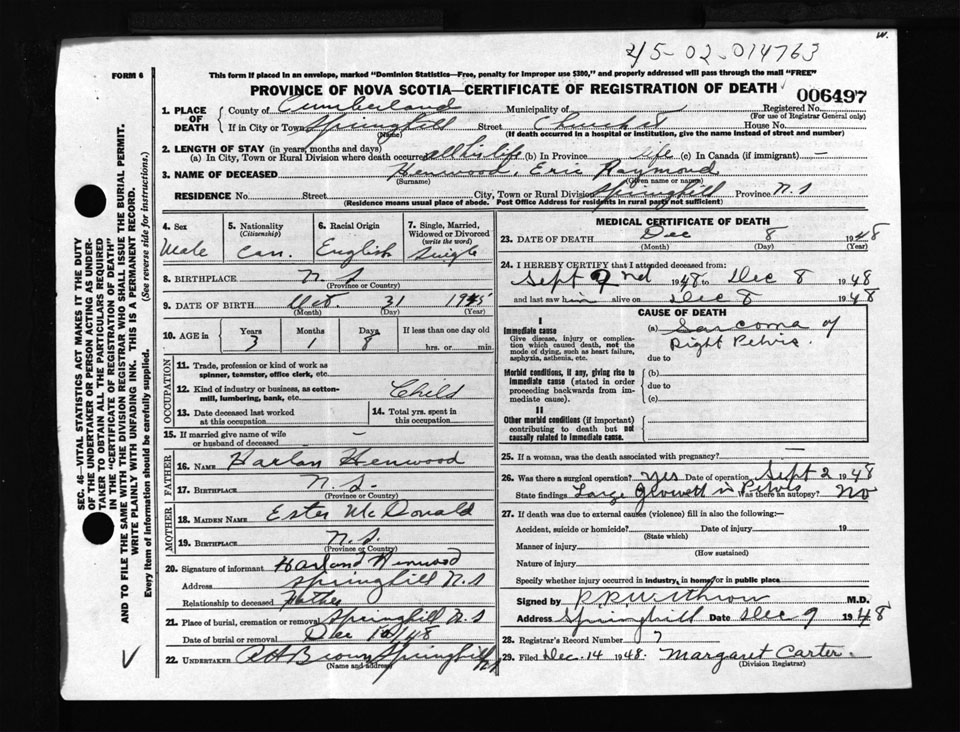 w.
45-02-014763
FORM 6
This form if placed in an envelope, marked "Dominion Statistics—Free, penalty for improper use $300," and properly addressed will pass through the mail "FREE"
PROVINCE OF NOVA SCOTIA—CERTIFICATE OF REGISTRATION OF DEATH
006497
1. PLACE OF DEATH
County of Cumberland Municipality of Registered No.
(For use of Registrar General only)
If in City or Town Springhill Street Church St House No.
(Name) (If death occurred in a hospital or institution, give the name instead of street and number)
2. LENGTH OF STAY (in years, months and days)
(a) In City, Town or Rural Division where death occurred all his life (b) In Province life (c) In Canada (if immigrant) —
3. NAME OF DECEASED Henwood, Eric Raymond
(Surname) (Given name or names)
RESIDENCE No. Street City, Town or Rural Division Springhill Province N.S
(Residence means usual place of abode. Post Office Address for residents in rural parts not sufficient)
4. Sex
Male
5. Nationality
(Citizenship)
Can.
6. Racial Origin
English
7. Single, Married, Widowed or Divorced
(write the word)
Single
8. BIRTHPLACE N.S
(Province or Country)
9. DATE OF BIRTH Oct. 31 1945
(Month) (Day) (Year)
10. AGE in
Years Months Days If less than one day old
3 1 8 hrs. or min.
OCCUPATION
11. Trade, profession or kind of work as
spinner, teamster, office clerk, etc.
12. Kind of industry or business, as cotton-
mill, lumbering, bank, etc. Child
13. Date deceased last worked
at this occupation
14. Total yrs. spent in
this occupation
15. If married give name of wife
or husband of deceased —
FATHER
16. NAME Harlan Henwood
17. BIRTHPLACE N.S.
(Province or Country)
MOTHER
18. MAIDEN NAME Ester McDonald
19. BIRTHPLACE N.S.
(Province or Country)
20. Signature of informant Harland Henwood
Address Springhill N.S
Relationship to deceased Father
21. Place of burial, cremation or removal Springhill N.S
Date of burial or removal Dec 10/48
22. UNDERTAKER Brown Springhill N.S
(Name and address)
MEDICAL CERTIFICATE OF DEATH
23. DATE OF DEATH Dec 8 1948
(Month) (Day) (Year)
24. I HEREBY CERTIFY that I attended deceased from:
Sept 2nd 1948 to Dec 8 1948
and last saw him alive on Dec 8 1948
CAUSE OF DEATH
I
Immediate cause
Give disease, injury or complica-
tion which caused death, not the
mode of dying, such as heart failure,
asphyxia, asthenia, etc.
(a) Sarcoma of
Right Pelvis.
due to
Morbid conditions, if any, giving rise to
immediate cause (stated in order
proceeding backwards from im-
mediate cause).
(b)
due to
(c)
II
Other morbid conditions (if important)
contributing to death but not
causally related to immediate cause.
25. If a woman, was the death associated with pregnancy? —
26. Was there a surgical operation? Yes Date of operation Sept 2 1948
State findings Large Growth in Pelvis Was there an autopsy? No
27. If death was due to external causes (violence) fill in also the following:—
Accident, suicide or homicide? Date of injury 19
(State which)
Manner of injury
(How sustained)
Nature of injury
Specify whether injury occurred in industry, in home, or in public place
Signed by Withrow M.D.
Address Springhill Date Dec 9 1948
28. Registrar's Record Number 7
29. Filed Dec. 14 1948. Margaret Carter.
(Division Registrar)
SEC. 46—VITAL STATISTICS ACT MAKES IT THE DUTY
OF THE UNDERTAKER OR PERSON ACTING AS UNDER-
TAKER TO OBTAIN ALL THE PARTICULARS REQUIRED
IN THE "CERTIFICATE OF REGISTRATION OF DEATH"
AND TO FILE THE SAME WITH THE DIVISION REGISTRAR WHO SHALL ISSUE THE BURIAL PERMIT.
WRITE PLAINLY WITH UNFADING INK. THIS IS A PERMANENT RECORD.
Every item of information should be carefully supplied. (See reverse side for instructions.)